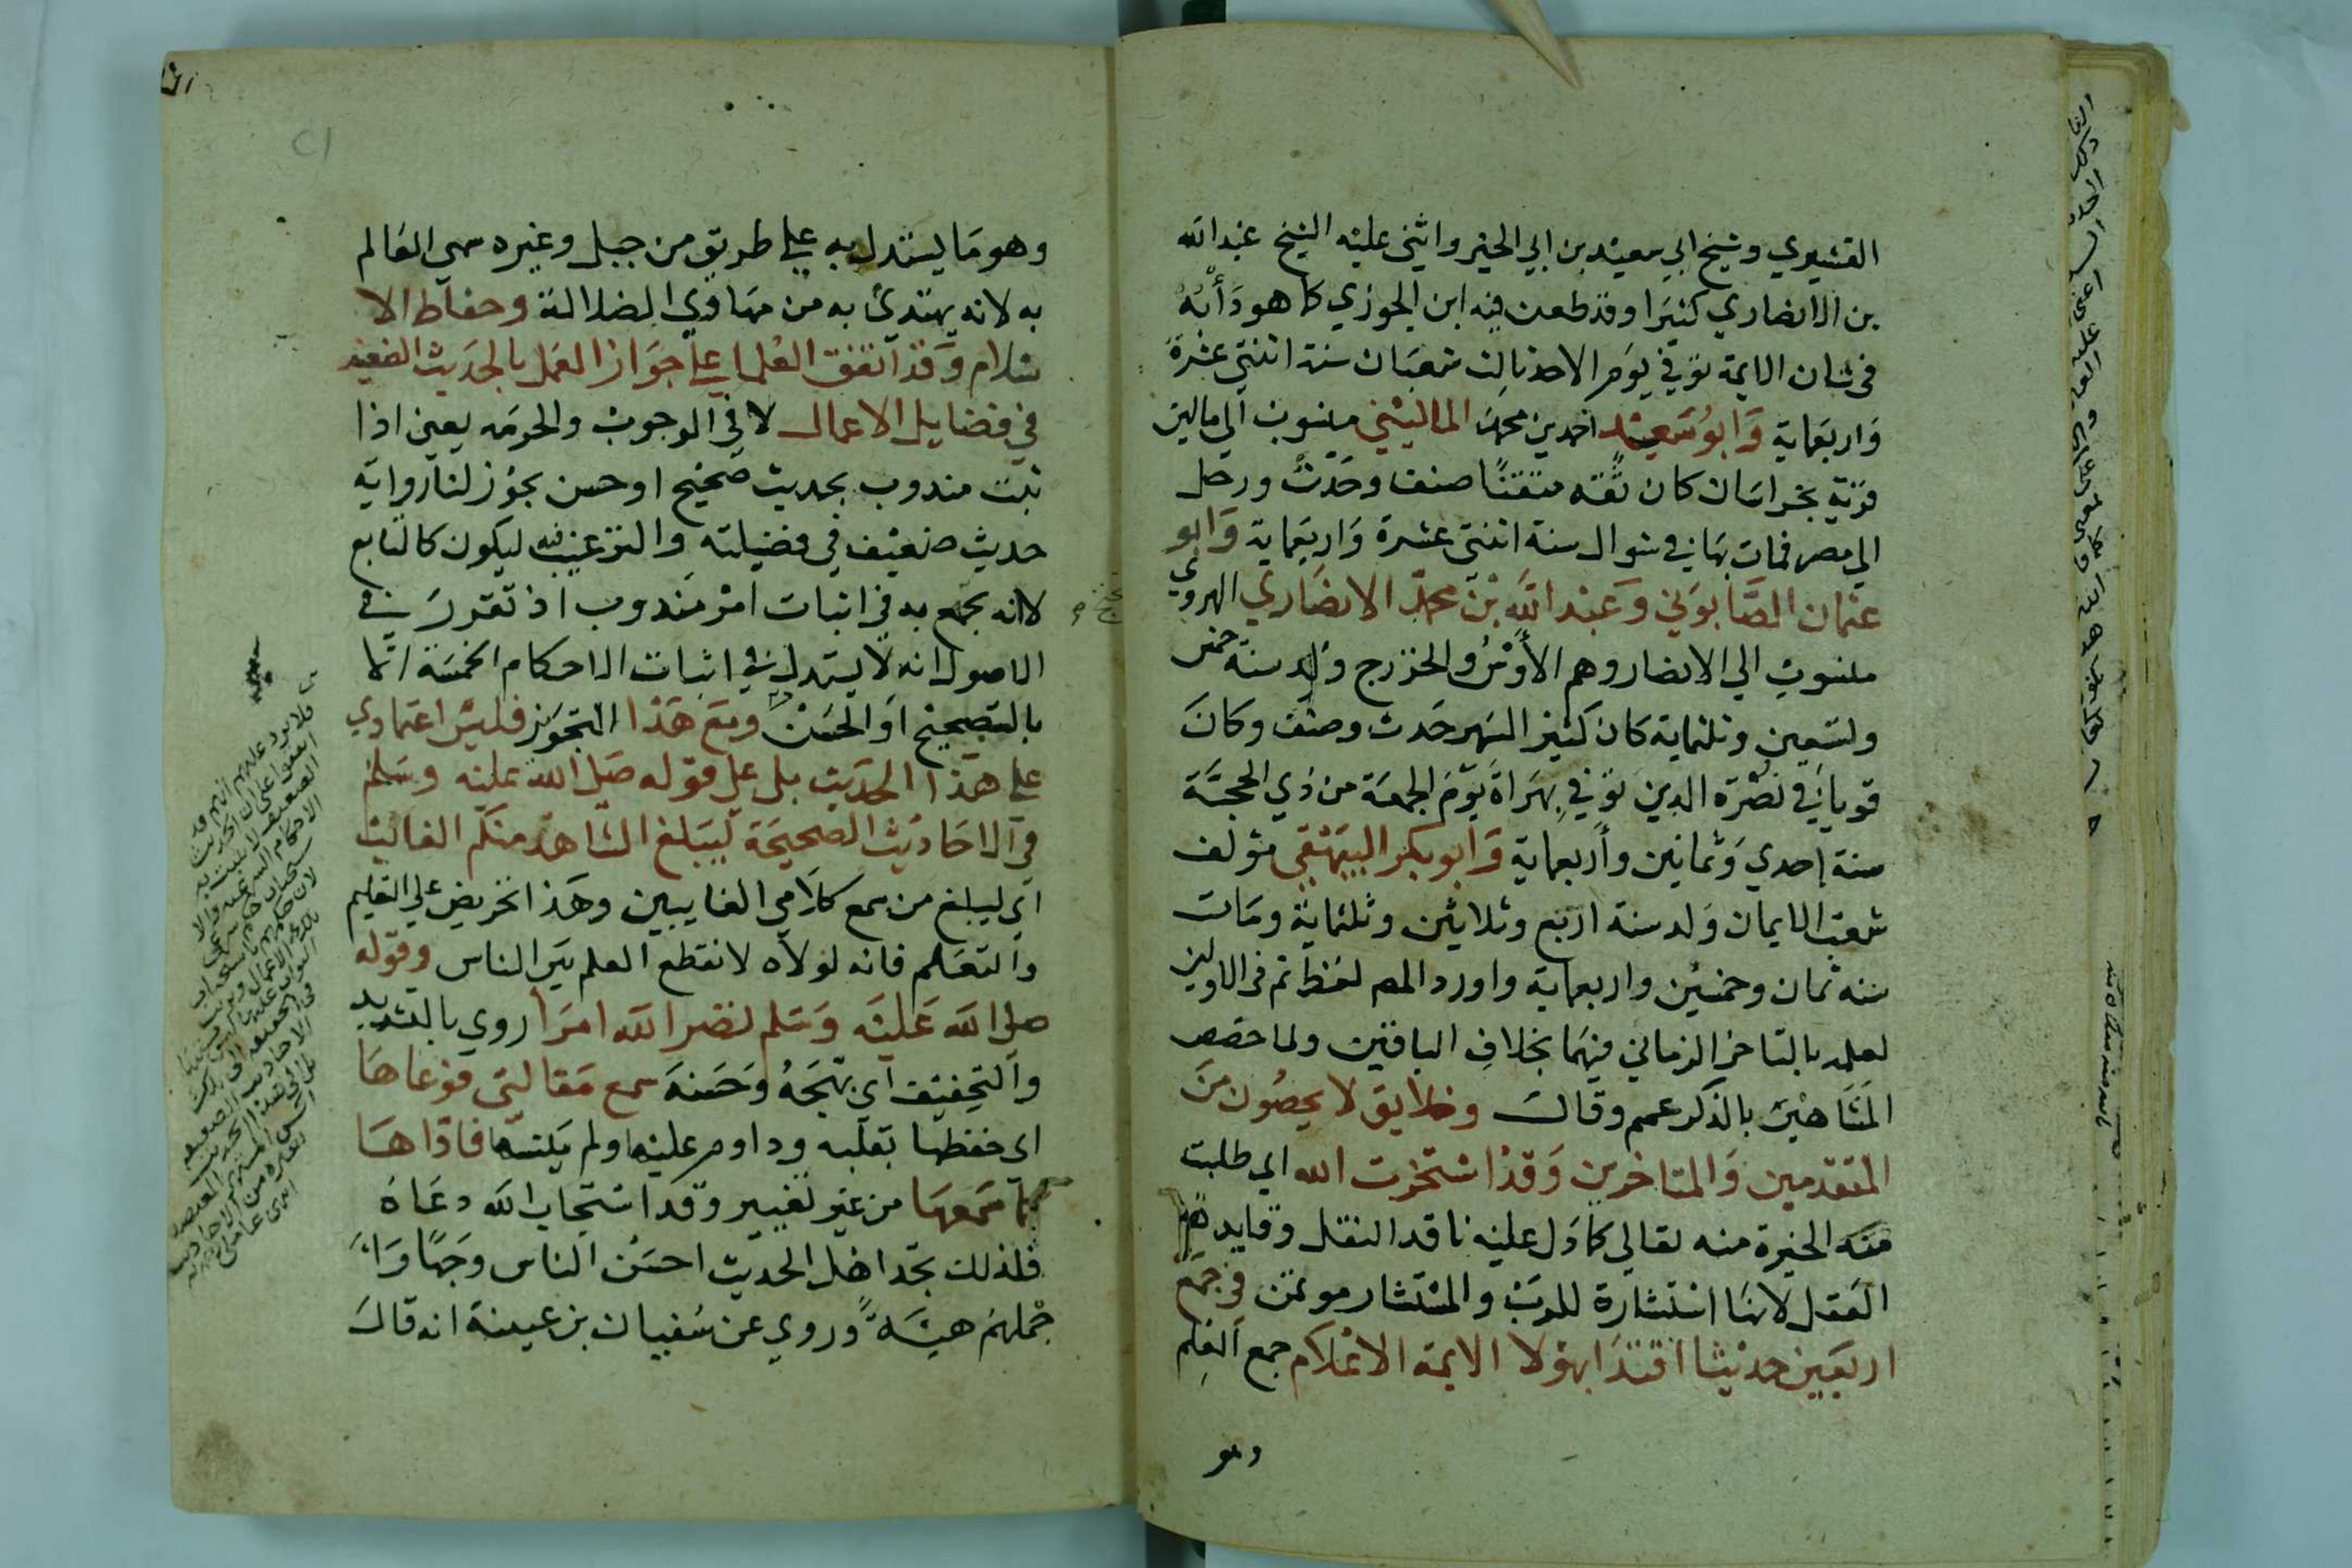 القشيري وشيخ ابي سعيد بن ابي الخير واثني عليه الشيخ عبد الله
بن الانصاري كثيرا وقد طعن فيه ابن الجوزي كما هو دَأبُهُ
في شان الايمة توفي في يوم الاحد ثالث شعبان سنة اثنتي عشرة
وَاربعماية وَابوُ سَعيْد احمد بن محمد الماليْني منسوب الي مالين
قرية بخراسان كان ثقة متقنًا صنف وحَدث ورحل
الي مصر فمات بها في شوال سنة اثنتي عشرة وَاربعماية وَابو
عثمان الصَّابوني وَعَبْد الله بْن محمد الانصَاري الهروي
منسوب الي الانصار وهم الأوْسُ والخزرج وُلد سنة خمس
وتسعين وثلثماية كان كثير السهر حَدث وصنف وكانَ
قويا في نصْرة الدين توفي بهَراةَ يوْمَ الجمعة من ذي الحجَّة
سنة إحدي وَثمانين وأربعماية وَابو بكر البيهَقي مؤلف
شعب الايمان وَلد سنة اربع وثلاثين وثلثماية ومَات
سنه ثمان وخمسين واربعماية واورد المص لفظ ثم في الاولين
لعلمه بالتاخر الزماني فيهمَا بخلافِ الباقين ولما خصص
المَشَاهيْرَ بالذكر عمم وقالَ وخلايق لا يحصُون منَ
المتقدمين وَالمتاخرين وَقد استخرت الله اي طلبت
منه الخيرة منه تعالي كما دَل عليه ناقد النقل وقايد
العَقل لانهَا استشارة للربّ والمسْتشار موتمن في جَمع
اربعين حديثا اقتدَا بهؤلا الايمة الاعْلام جمع العَلم
وهو
وهو مَا يستدل به علي طريق من جبل وغيره سمي العَالم
به لانه يهتديُ به من مهَاوي الضلالة وحفاظ الا
سْلام وَقد اتفق العُلما علي جوَاز العَمل بالحَديث الضعيف
في فضايل الاعمال لا في الوجوب والحرمَه يعين اذا
ثبت مندوب بحديث صَحيح او حسن يجوُز لنا رواية
حديث ضعيف في فضيلته والترغيب فيه ليكون كالتابع
لانه يجمع به في اثبات امْر مَندوب اذ تقررَ في
الاصول انه لا يستدل في اثبات الاحكام الخمسَة الا
بالتصحيح اوَ الحَسَن ومَع هَذا التجوَيز فليسَ اعتمادي
علي هَذا الحَديث بل علي قوله صَلى الله عليه وسَلم
في الاحَاديث الصحيحَة ليَبلغ الشاهد منكم الغائب
اي ليبلغ من سمع كلامي الغايبين وهَذا تحريض علي التعليم
وَالتعَلم فانه لولاه لانقطع العلم بيَن الناس وقوله
صلى الله عَليْه وَسَلم نضر الله امرَا روي بالتشديد
وَالتخفيف اي بَهجَهُ وَحَسنهَ سمع مَقالتي فوَعاهَا
اي حفظها بقلبه وداوم عليها ولم يَنسها فادّاهَا
كما سَمعهَا من غير تغيير وقد استجاب الله دعَاهُ
فلذلك تجد اهْل الحديث احسَن الناس وَجهًا وَا
جْملهُم هيئَةً وروي عن سُفيان بن عيينة انه قالَ